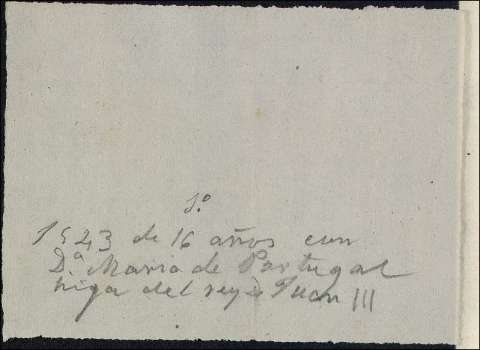 1º
1543 de 16 años con
D.ª Maria de Portugal
hija del rey Juan III